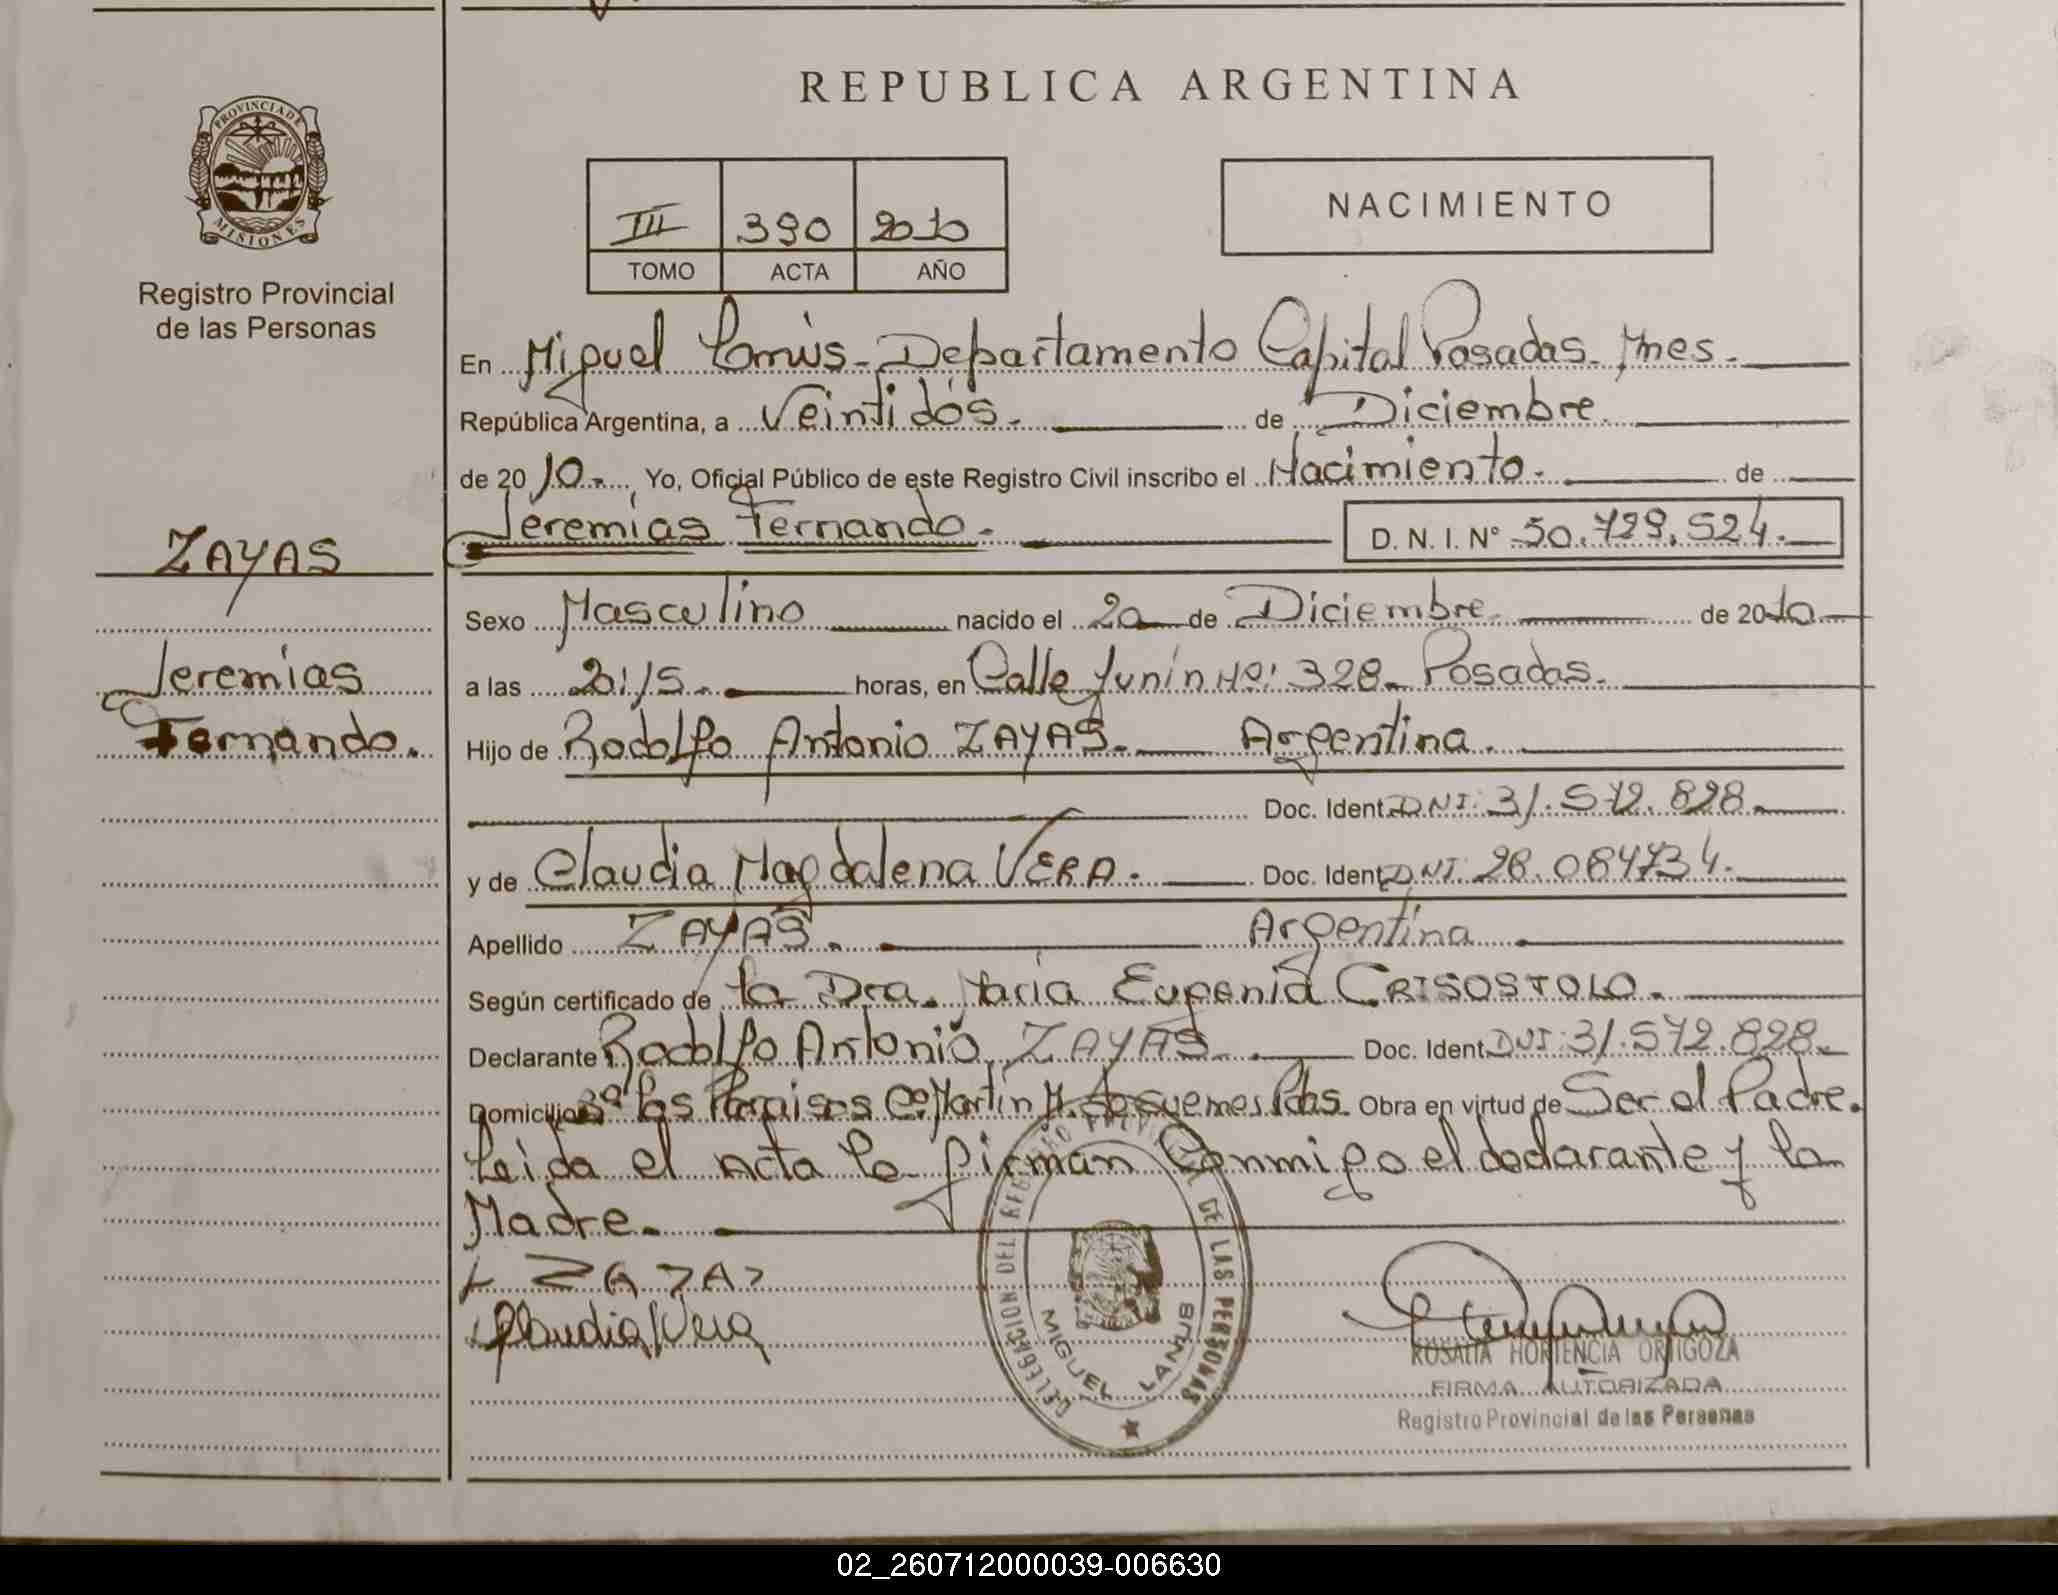 REPUBLICA ARGENTINA
PROVINCIA DE
MISIONES
Registro Provincial
de las Personas
III 390 2010
TOMO ACTA AÑO
NACIMIENTO
En Miguel Lanús - Departamento Capital Posadas. Mnes.
República Argentina, a Veintidós. de Diciembre.
de 2010. Yo, Oficial Público de este Registro Civil inscribo el Nacimiento. de
Jeremías Fernando. D. N. I. N° 50.729.524.
ZAYAS
Jeremías
Fernando.
Sexo Masculino nacido el 20 de Diciembre de 2010
a las 20:15. horas, en Calle Junín Nº: 328. Posadas.
Hijo de Rodolfo Antonio ZAYAS. Argentina.
Doc. Ident. DNI: 31.572.828.
y de Claudia Magdalena VERA. Doc. Ident. DNI: 28.084734.
Apellido ZAYAS. Argentina
Según certificado de la Dra. María Eugenia CRISOSTOLO.
Declarante Rodolfo Antonio ZAYAS. Doc. Ident. DNI: 31.572.828.
Domicilio Bº los Paraisos C. Martín M. de Güemes. Pdas. Obra en virtud de Ser el Padre.
Leída el acta la firman Conmigo el declarante y la
Madre.
ZAYAS
Claudia Vera
DELEGACION DEL REGISTRO PROVINCIAL DE LAS PERSONAS
MIGUEL LANUS
ROSALIA HORTENCIA ORTIGOZA
FIRMA AUTORIZADA
Registro Provincial de las Personas
02_260712000039-006630